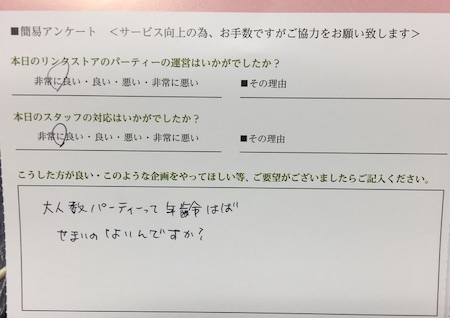 ■簡易アンケート <サービス向上の為、お手数ですがご協力をお願い致します>
本日のリンタストアのパーティーの運営はいかがでしたか?
非常に良い・良い・悪い・非常に悪い ■その理由
本日のスタッフの対応はいかがでしたか?
非常に良い・良い・悪い・非常に悪い ■その理由
こうした方が良い・このような企画をやってほしい等、ご要望がございましたらご記入ください。
大人数パーティーって年齢はば
せまいのはないんですか?